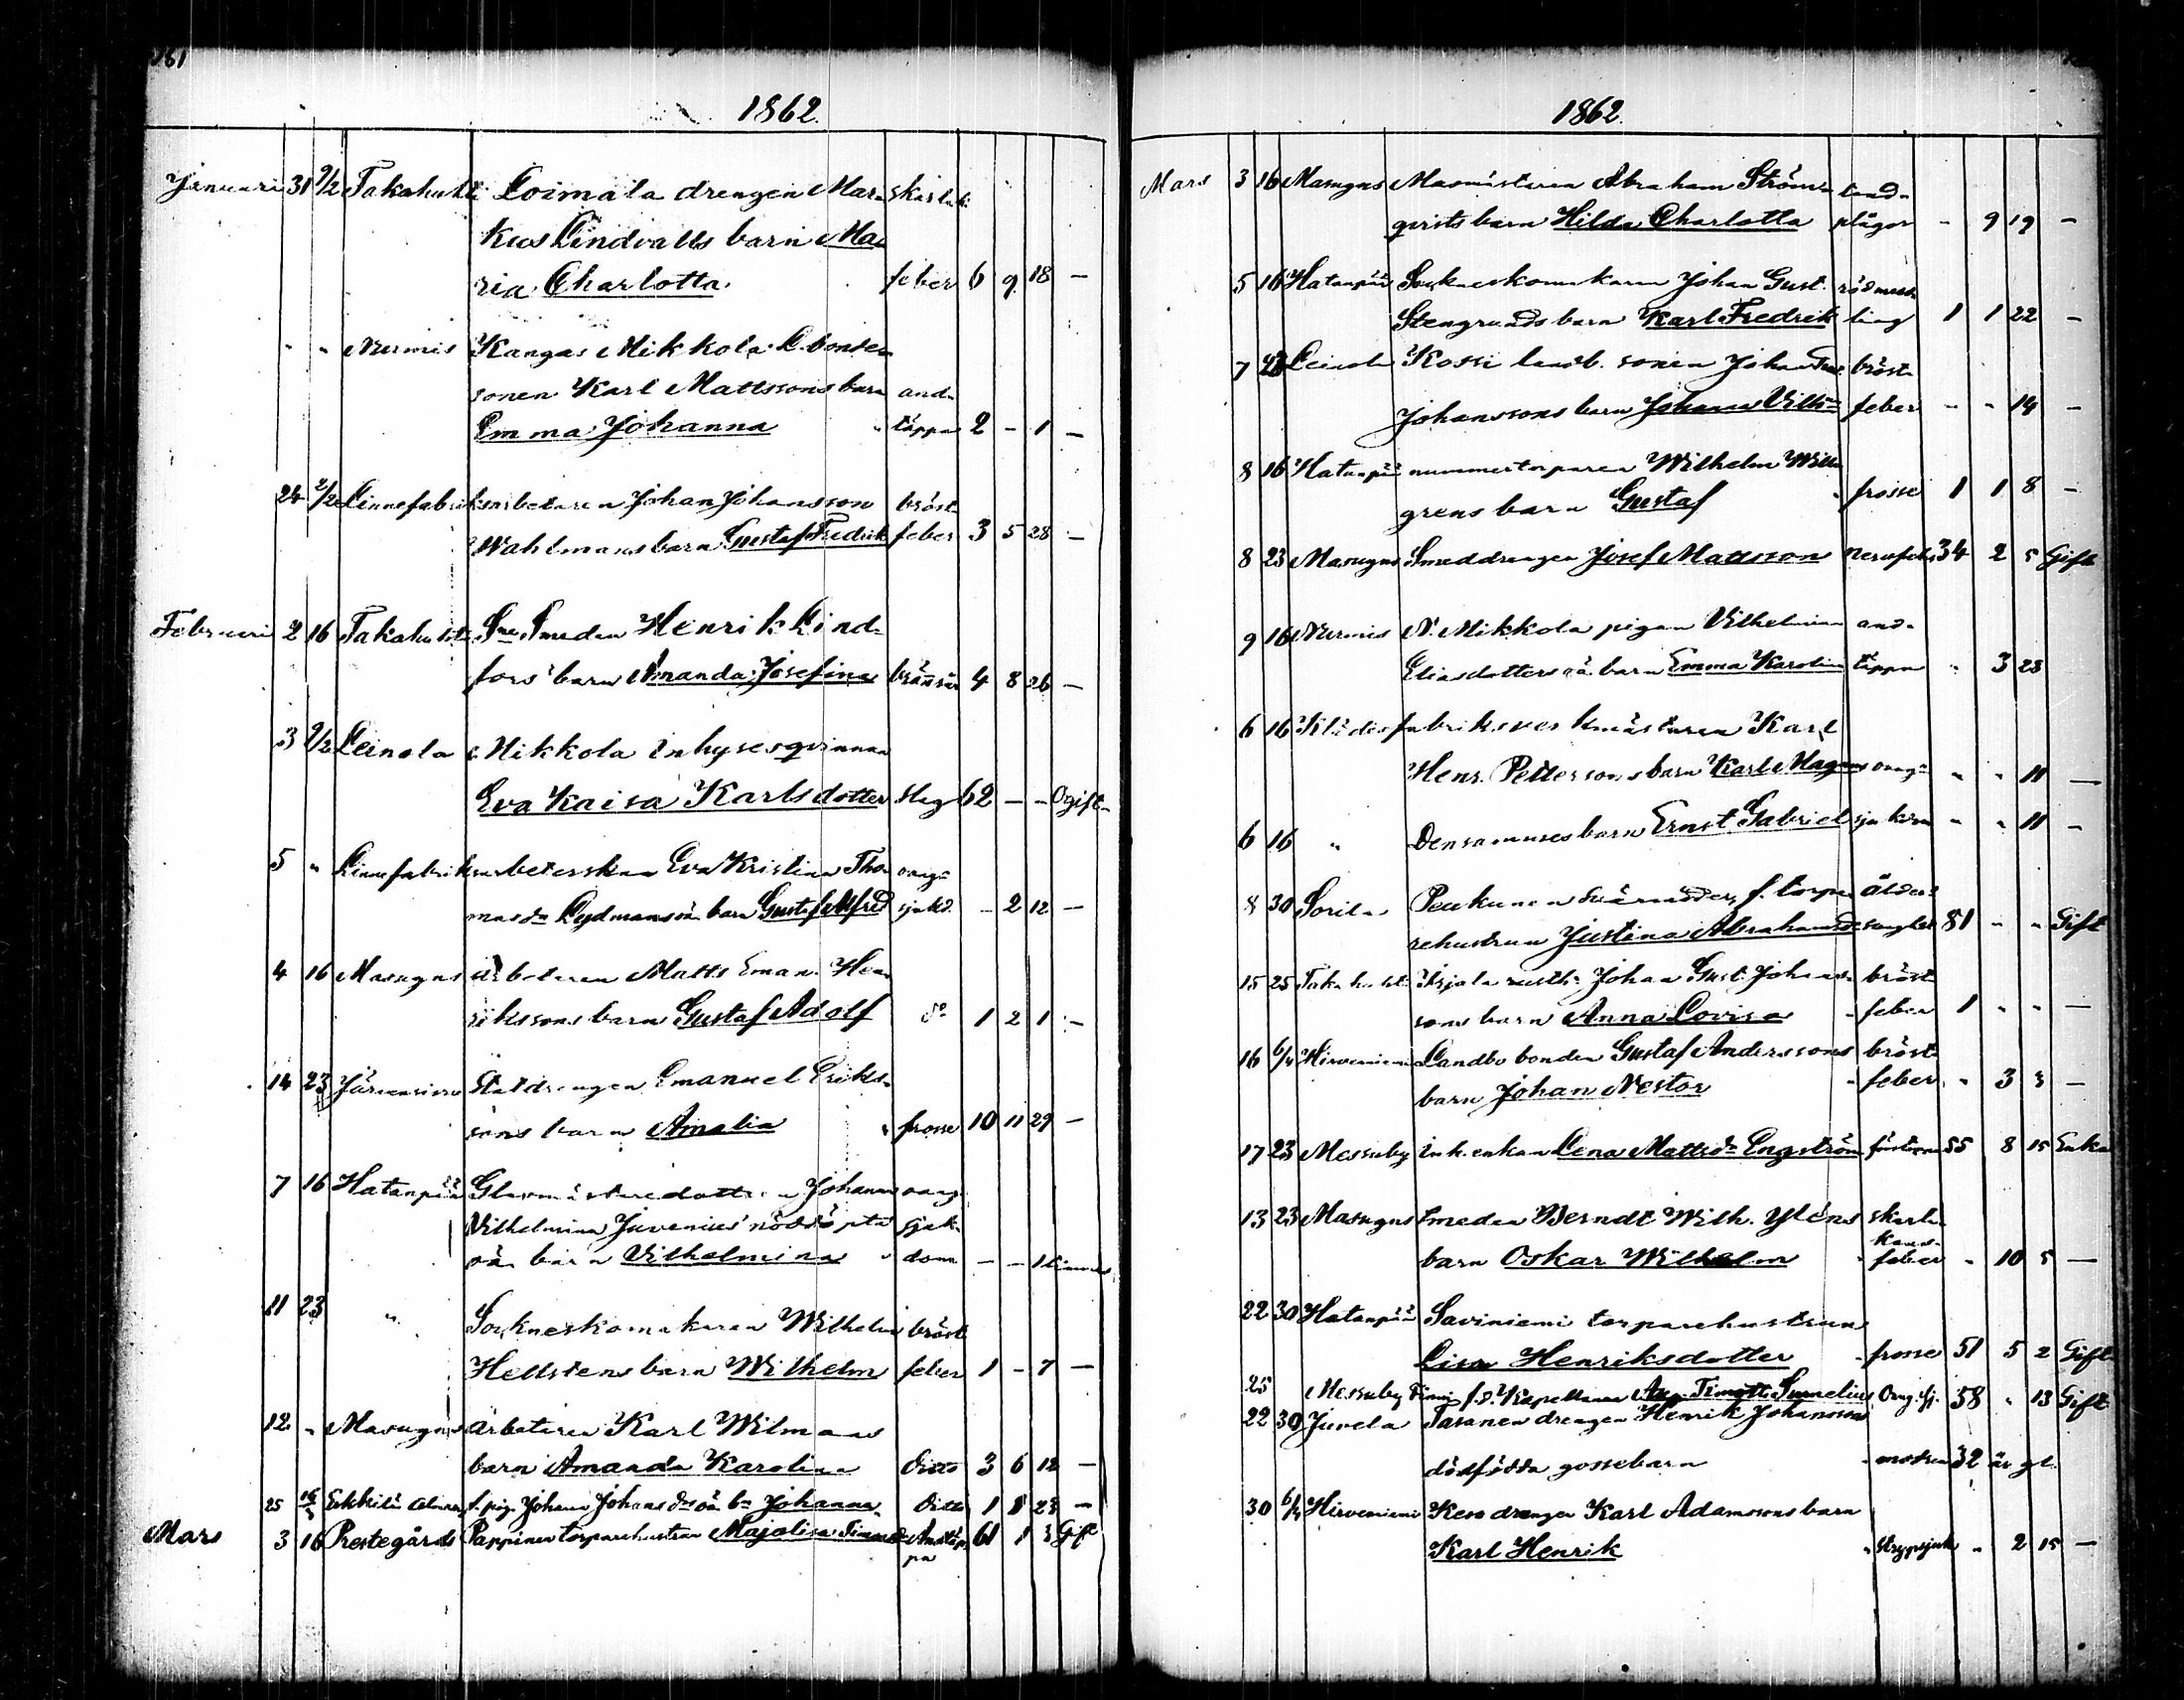 161
1862.
Januari 31 9/2 Takahuhti Loimala drengen Mar- skarlak.
kus Lindvalls barn Ma-
ria Charlotta. feber 6 9 18 —
" " Nurmis Kangas Mikkola L. bonde-
sonen Karl Mattssons barn and-
Emma Johanna täppa 2 - 1 —
24 2/2 Linnefabriksarbetaren Johan Johansson bröst-
Wahlmans barn Gustaf Fredrik feber 3 5 28 —
Februari 2 16 Takahuhti Sne Smeden Henrik Lind-
fors' barn Amanda Josefina brännsår 4 8 26 —
3 9/2 Leinola Mikkola inhysesqvinnan
Eva Kaisa Karlsdotter slag 62 — — Ogift
5 " Linnefabriksarbeterskan Eva Kristina Tho- oang-
masdr Lydmans oä. barn Gustaf Alfred sjukd. - 2 12 —
4 16 Masugns arbetaren Matts Eman. Hen-
rikssons barn Gustaf Adolf do 1 2 1 —
14 23 Järvensivu Statdrengen Emanuel Eriks-
sons barn Amalia frosse 10 11 29 —
7 16 Hatanpää Glasmästaredottren Johanna oang.
Vilhelmina Juvenius' nöddöpta sjuk-
oä. barn Vilhelmina dom — — 1 timmes
11 23 " Sockneskomakaren Wilhelm bröst
Hellstens barn Wilhelm feber 1 - 7 —
12 " Masugns arbetaren Karl Wilmans
barn Amanda Karolina Ditto 3 6 12 —
25 16/3 f. pig. Johanna Johansdrs oä bn Johanna Ditto 1 8 23 —
Mars 3 16 Prestegårds Pappinen torparehustrun Majalisa Andtäp- 61 1 3 Gift
pa
1862.
Mars 3 16 Masugns Masmästaren Abraham Ström- tand-
qvists barn Hilda Charlotta plågor - 9 19 —
5 16 Hatanpää Sockneskomakaren Johan Gust. rödmess-
Stengrunds barn Karl Fredrik ling 1 1 22 —
7 23 Leinola Kossi landb. sonen Johan bröst-
Johanssons barn Johanna Vilhna feber - - 14 —
8 16 Hatanpää nummertorparen Wilhelm Will-
grens barn Gustaf frosse 1 1 8 —
8 23 Masugns Smeddrengen Josef Mattsson Nervfeber 34 2 5 Gift
9 16 Nurmis N. Mikkola pigan Vilhelmina and-
Eliasdotters oä. barn Emma Karolina täppa " 3 23
6 16 Klädesfabriksverkmästaren Karl
Henr. Pettersons barn Karl Magnus oang- " " 11 —
6 16 " Densammes barn Ernst Gabriel sjukdom " " 11 —
8 30 Sorila Peukunen svärmoder, f. torpa- ålder-
rehustrun Justina Abrahamsdr 81 - - Gift
15 25 Takahuhti Johan Gust. Johans- bröst
sons barn Anna Lovisa feber 1 - - —
16 6/4 Hirvenniemi Landbobonden Gustaf Anderssons bröst-
barn Johan Nestor feber - 3 3 —
17 23 Messuby Inh. enkan Lena Mattsdr Engström 55 8 15 Enka
13 23 Masugns smeden Berndt Wilh. Yléns skarla-
kans-
barn Oskar Wilhelm feber - 10 5 —
22 30 Hatanpää Saviniemi torparehustrun
Lisa Henriksdotter frosse 51 5 2 Gift
25 Messuby f.d. Kapellanen Aug. Timoth. Surnelius Oang. sj. 58 " 13 Gift
22 30 Juvela Tasanen drengen Henrik Johanssons
dödfödda gossebarn modren 32 år gl.
30 6/4 Hirvenniemi Keso drengen Karl Adamssons barn
Karl Henrik Strypsjuka " 2 15 —